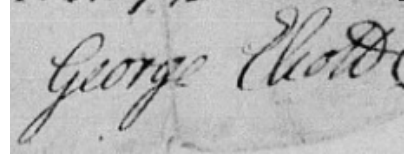 George Eliott